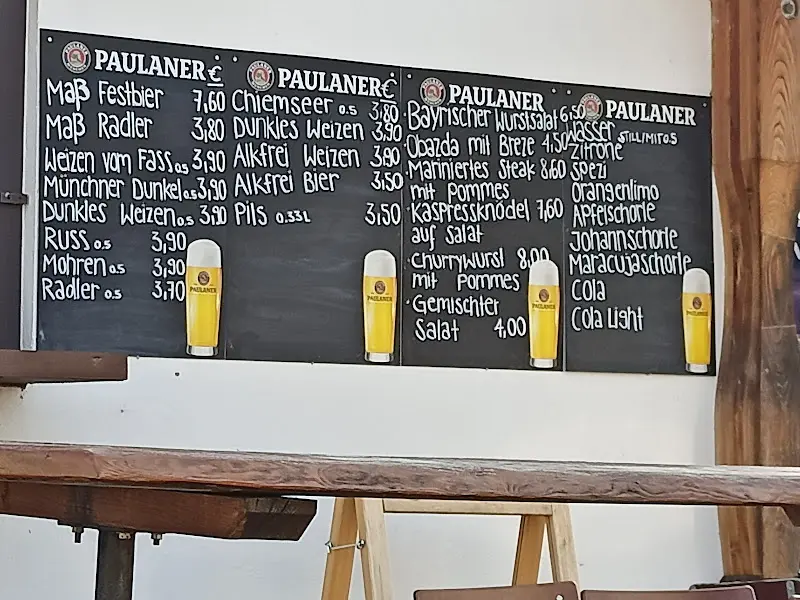 PAULANER €
Maß Festbier 7,60
Maß Radler 3,80
Weizen vom Fass 0.5 3,90
Münchner Dunkel 0.5 3,90
Dunkles Weizen 0.5 3,90
RUSS 0.5 3,90
Mohren 0.5 3,90
Radler 0.5 3,70
PAULANER
PAULANER €
Chiemseer 0.5 3,80
Dunkles Weizen 3,90
Alkfrei Weizen 3,90
Alkfrei Bier 3,50
Pils 0.33L 3,50
PAULANER
PAULANER
Bayrischer Wurstsalat 6,50
Obazda mit Breze 4,50
Mariniertes Steak 8,60
mit Pommes
Kaspressknödel 7,60
auf Salat
Churrywurst 8,00
mit Pommes
Gemischter
Salat 4,00
PAULANER
PAULANER
Wasser STILL/MIT 0.5
Zitrone
Spezi
Orangenlimo
Apfelschorle
Johannschorle
Maracujaschorle
Cola
Cola Light
PAULANER